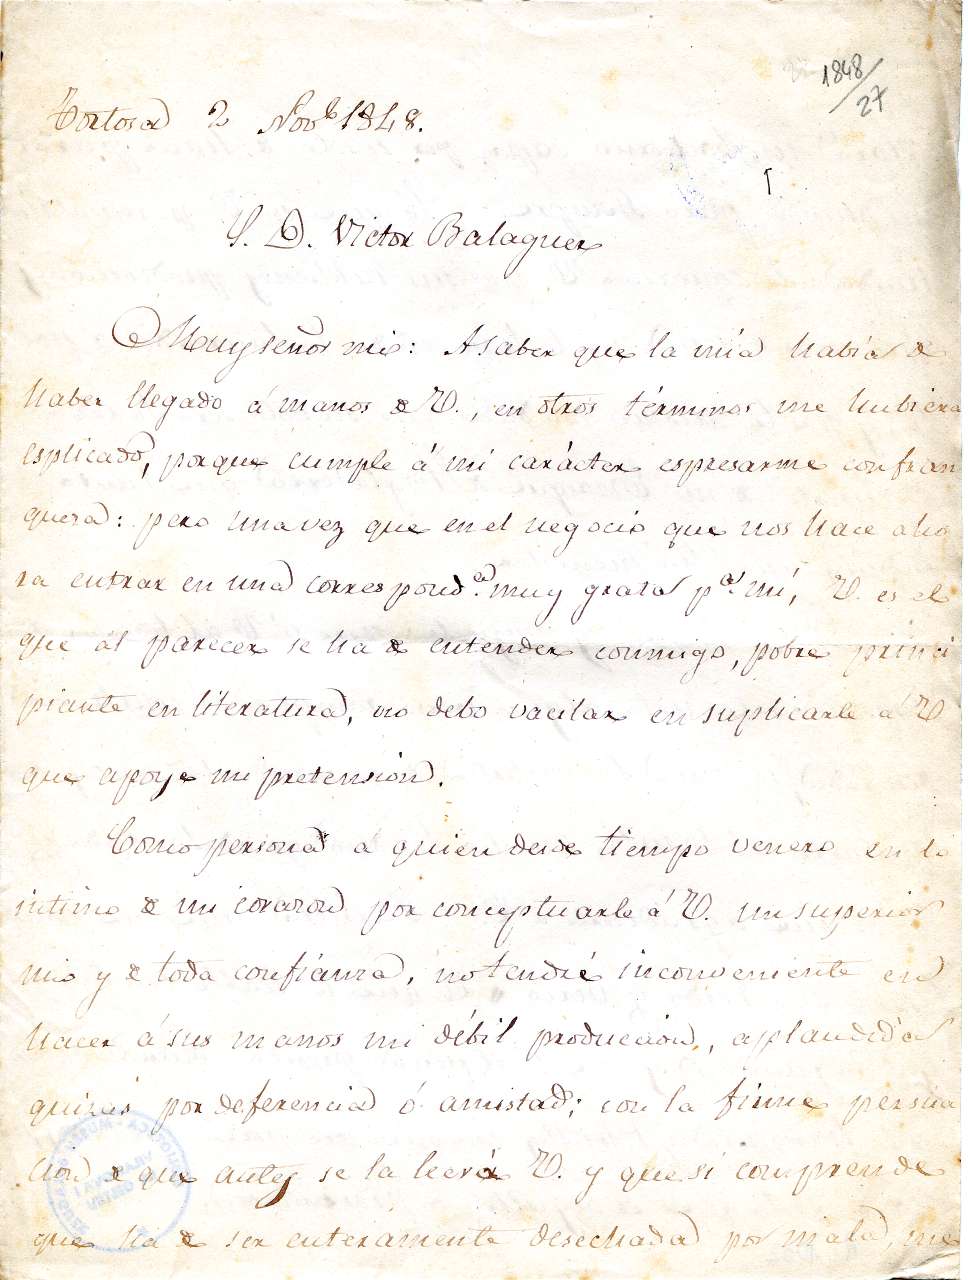 1848/27
1
Tortosa 2 Novbe 1848.
S. D. Victor Balaguer
Muy señor mio: A saber que la mía habia de
haber llegado á manos de V., en otros términos me hubiera
esplicado, porque cumple á mi carácter espresarme con fran
queza: pero una vez que en el negocio que nos hace aho
ra entrar en una correspond.a muy grata p.a mí, V. es el
que al parecer se ha de entender conmigo, pobre princi
piante en literatura, no debo vacilar en suplicarle a V
que apoye mi pretension.
Como persona á quien desde tiempo venero en lo
intimo de mi corazon por conceptuarle á V. un superior
mio y de toda confianza, no tendré inconveniente en
hacer á sus manos mi débil produccion, aplaudida
quizás por deferencia ó amistad; con la firme persua
cion de que antes se la leerá V. y que si comprende
que ha de ser enteramente desechada por mala, me